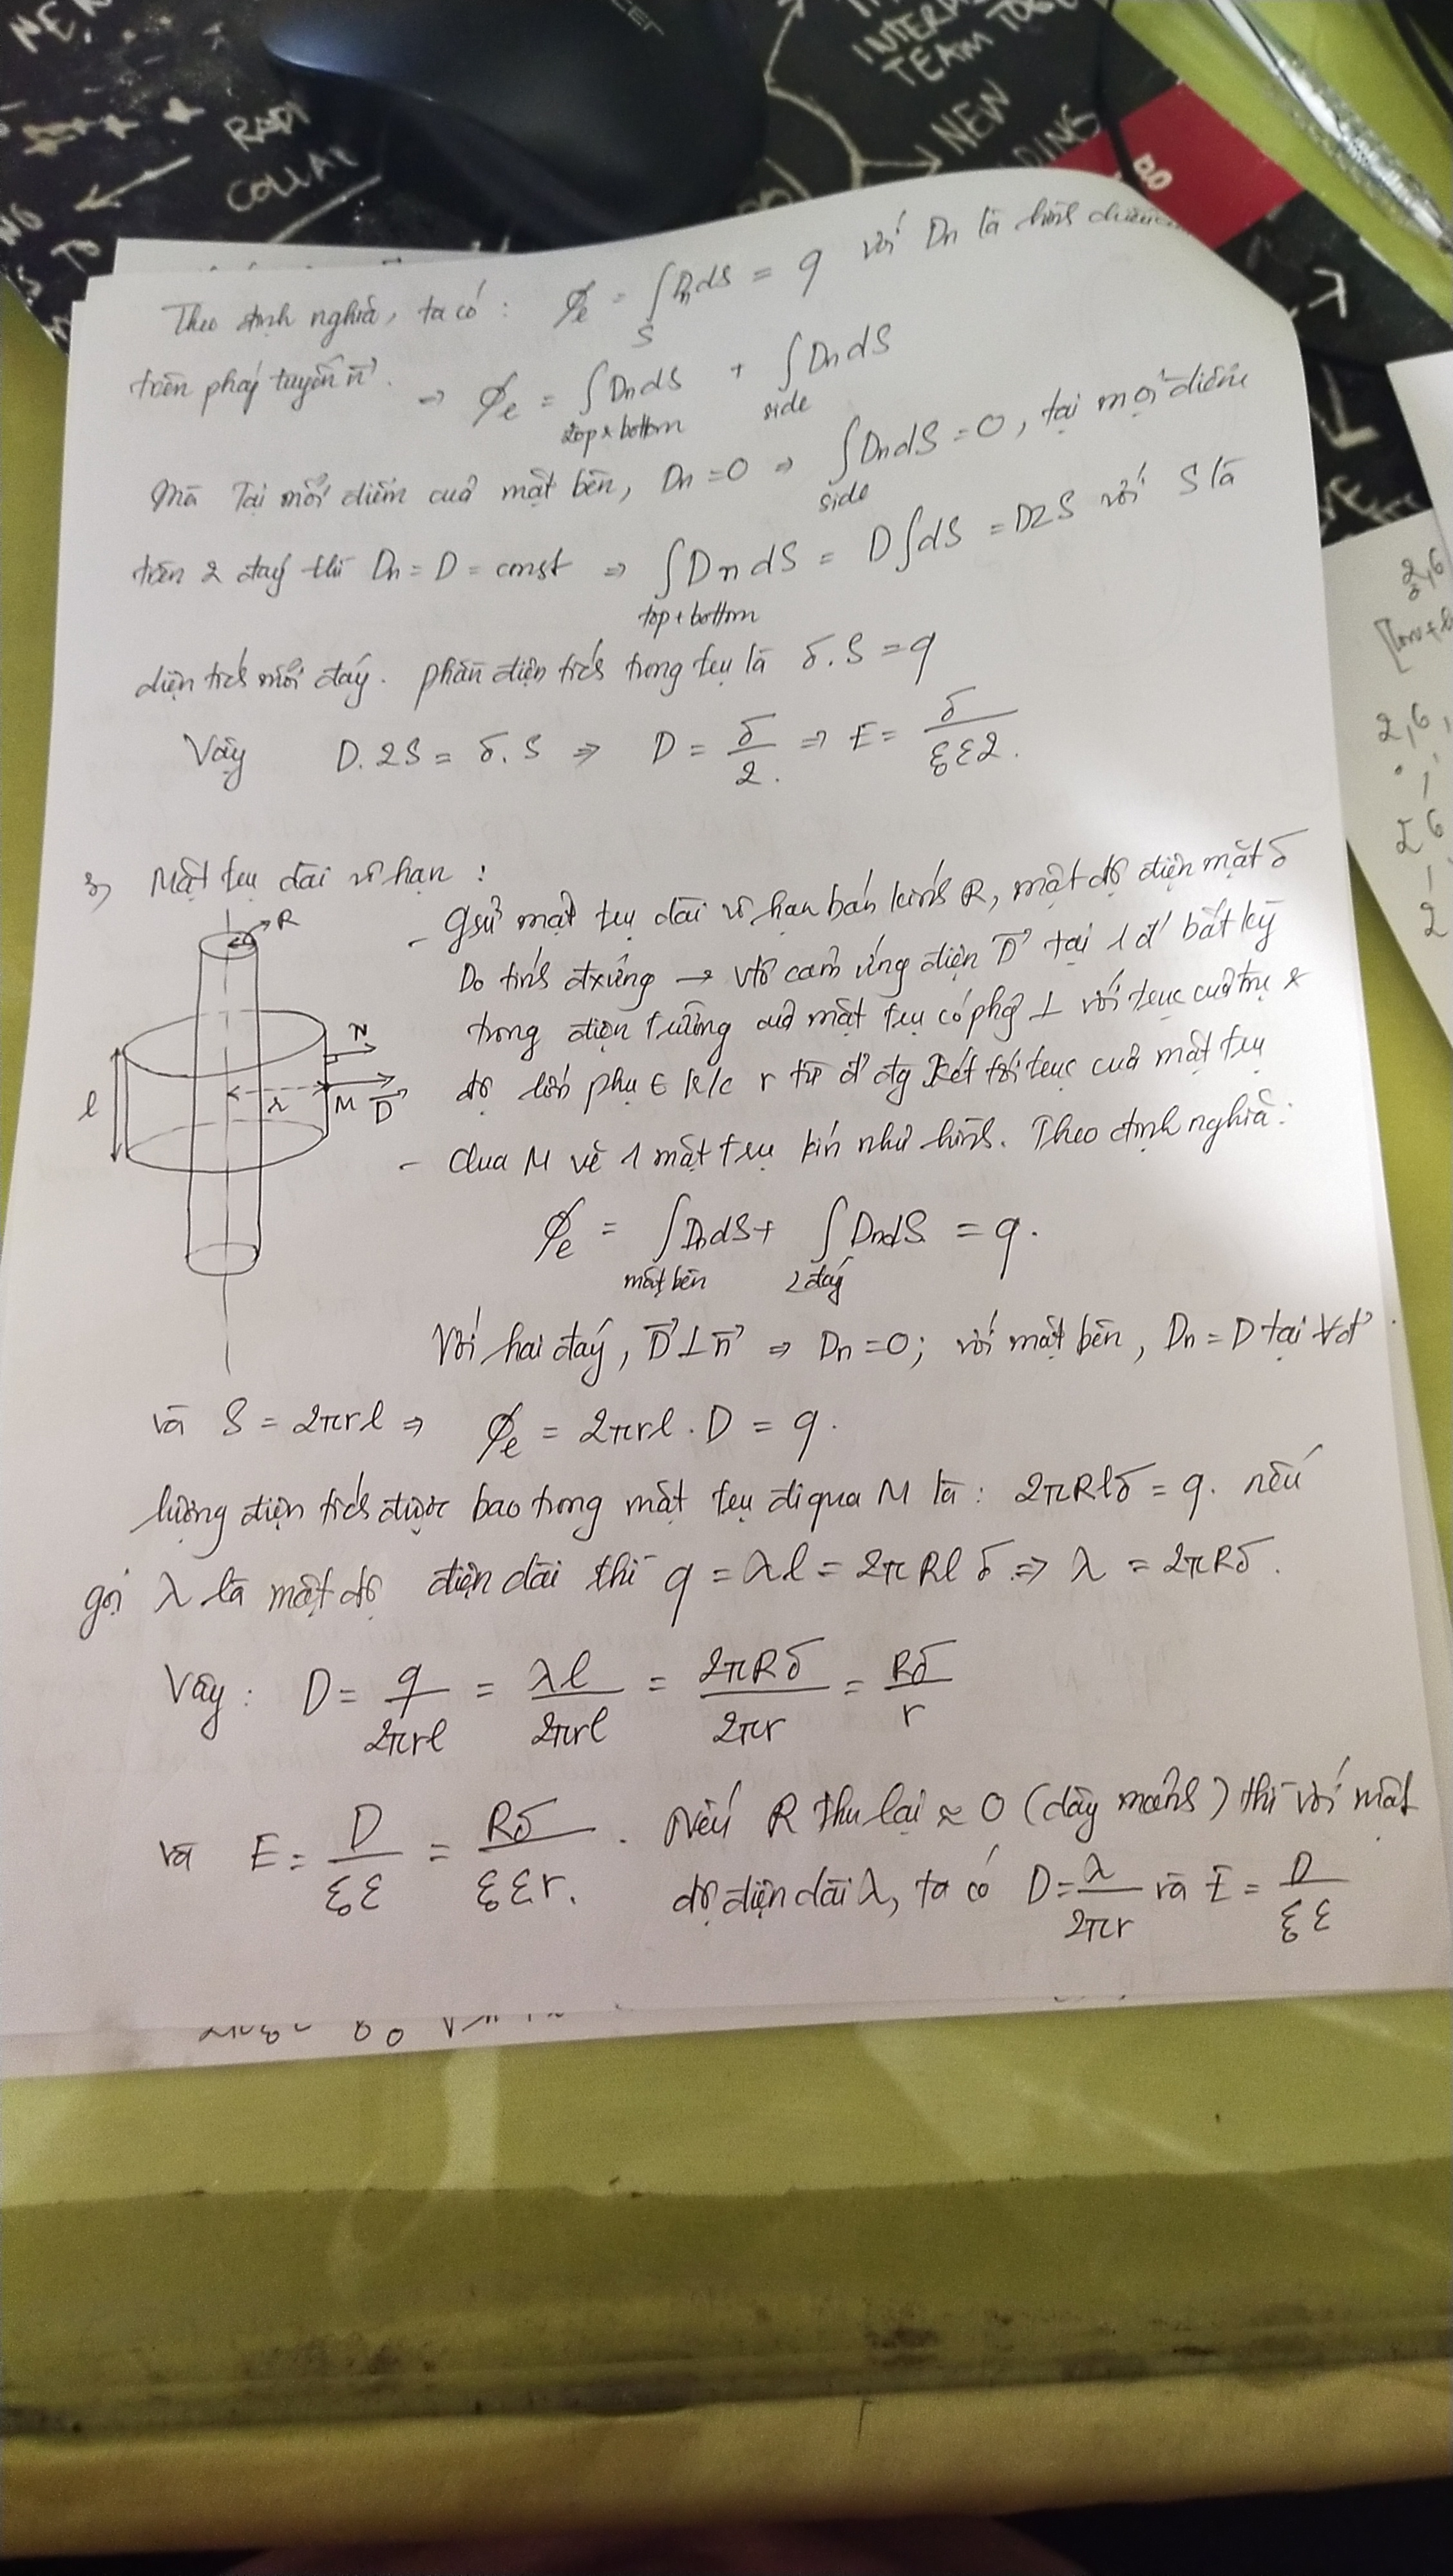 NE
CET
INTER
TEAM TOG
NEW
DING
RADI
COLLAR
TO
Theo định nghĩa, ta có: φe = ∫ Dn dS = q với Dn là hình chiếu
S
trên pháp tuyến n⃗. → φe = ∫ Dn dS + ∫ Dn dS
top + bottom side
Mà Tại mỗi điểm của mặt bên, Dn = 0 ⇒ ∫ Dn dS = 0, tại mọi điểm
side
trên 2 đáy thì Dn = D = const ⇒ ∫ Dn dS = D ∫ dS = D2S với S là
top + bottom
diện tích mỗi đáy. phần điện tích trong trụ là δ.S = q
Vậy D.2S = δ.S ⇒ D = δ/2. ⇒ E = δ/(ε₀ε2).
3, Mặt trụ dài vô hạn:
R
- Gsử mặt trụ dài vô hạn bán kính R, mật độ điện mặt δ
Do tính đxứng → vtơ cảm ứng điện D⃗ tại 1 đ' bất kỳ
trong điện trường của mặt trụ có phg ⊥ với trục của trụ &
độ lớn phụ ∈ k/c r từ đ' đg xét tới trục của mặt trụ
n⃗
l r M D⃗
- Qua M vẽ 1 mặt trụ kín như hình. Theo định nghĩa:
φe = ∫ Dn dS + ∫ Dn dS = q.
mặt bên 2 đáy
Với hai đáy, D⃗ ⊥ n⃗ ⇒ Dn = 0; với mặt bên, Dn = D tại ∀đ'
và S = 2πrl ⇒ φe = 2πrl . D = q.
lượng điện tích được bao trong mặt trụ đi qua M là: 2πRlδ = q. nếu
gọi λ là mật độ điện dài thì q = λl = 2πRlδ ⇒ λ = 2πRδ.
Vậy: D = q/(2πrl) = λl/(2πrl) = 2πRδ/(2πr) = Rδ/r
và E = D/(ε₀ε) = Rδ/(ε₀εr). Nếu R thu lại ≈ 0 (dây mảnh) thì với mật
độ điện dài λ, ta có D = λ/(2πr) và E = D/(ε₀ε)
2,6
2,6,